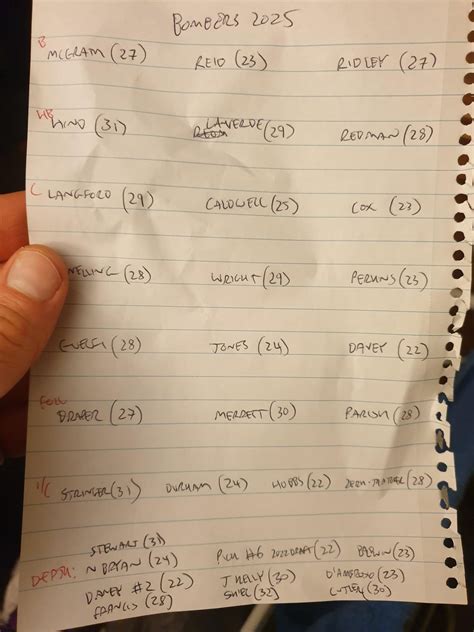 BOMBERS 2025
B McGRAM (27) REID (23) RIDLEY (27)
HB HIND (31) LAVERDE (29) REDMAN (28)
C LANGFORD (29) CALDWELL (25) COX (23)
NELLING (28) WRIGHT (29) PERKINS (23)
GUELFI (28) JONES (24) DAVEY (22)
FOLL DRAPER (27) MERRETT (30) PARISH (28)
I/C STRINGER (31) DURHAM (24) HOBBS (22) (28)
STEWART (31)
DEPTH: N BRYAN (24) PICK #6 2022 DRAFT (22) BALDWIN (23)
DAVEY #2 (22) J KELLY (30) D'AMBROSIO (23)
FRANCIS (28) SHIEL (32) CUTLER (30)